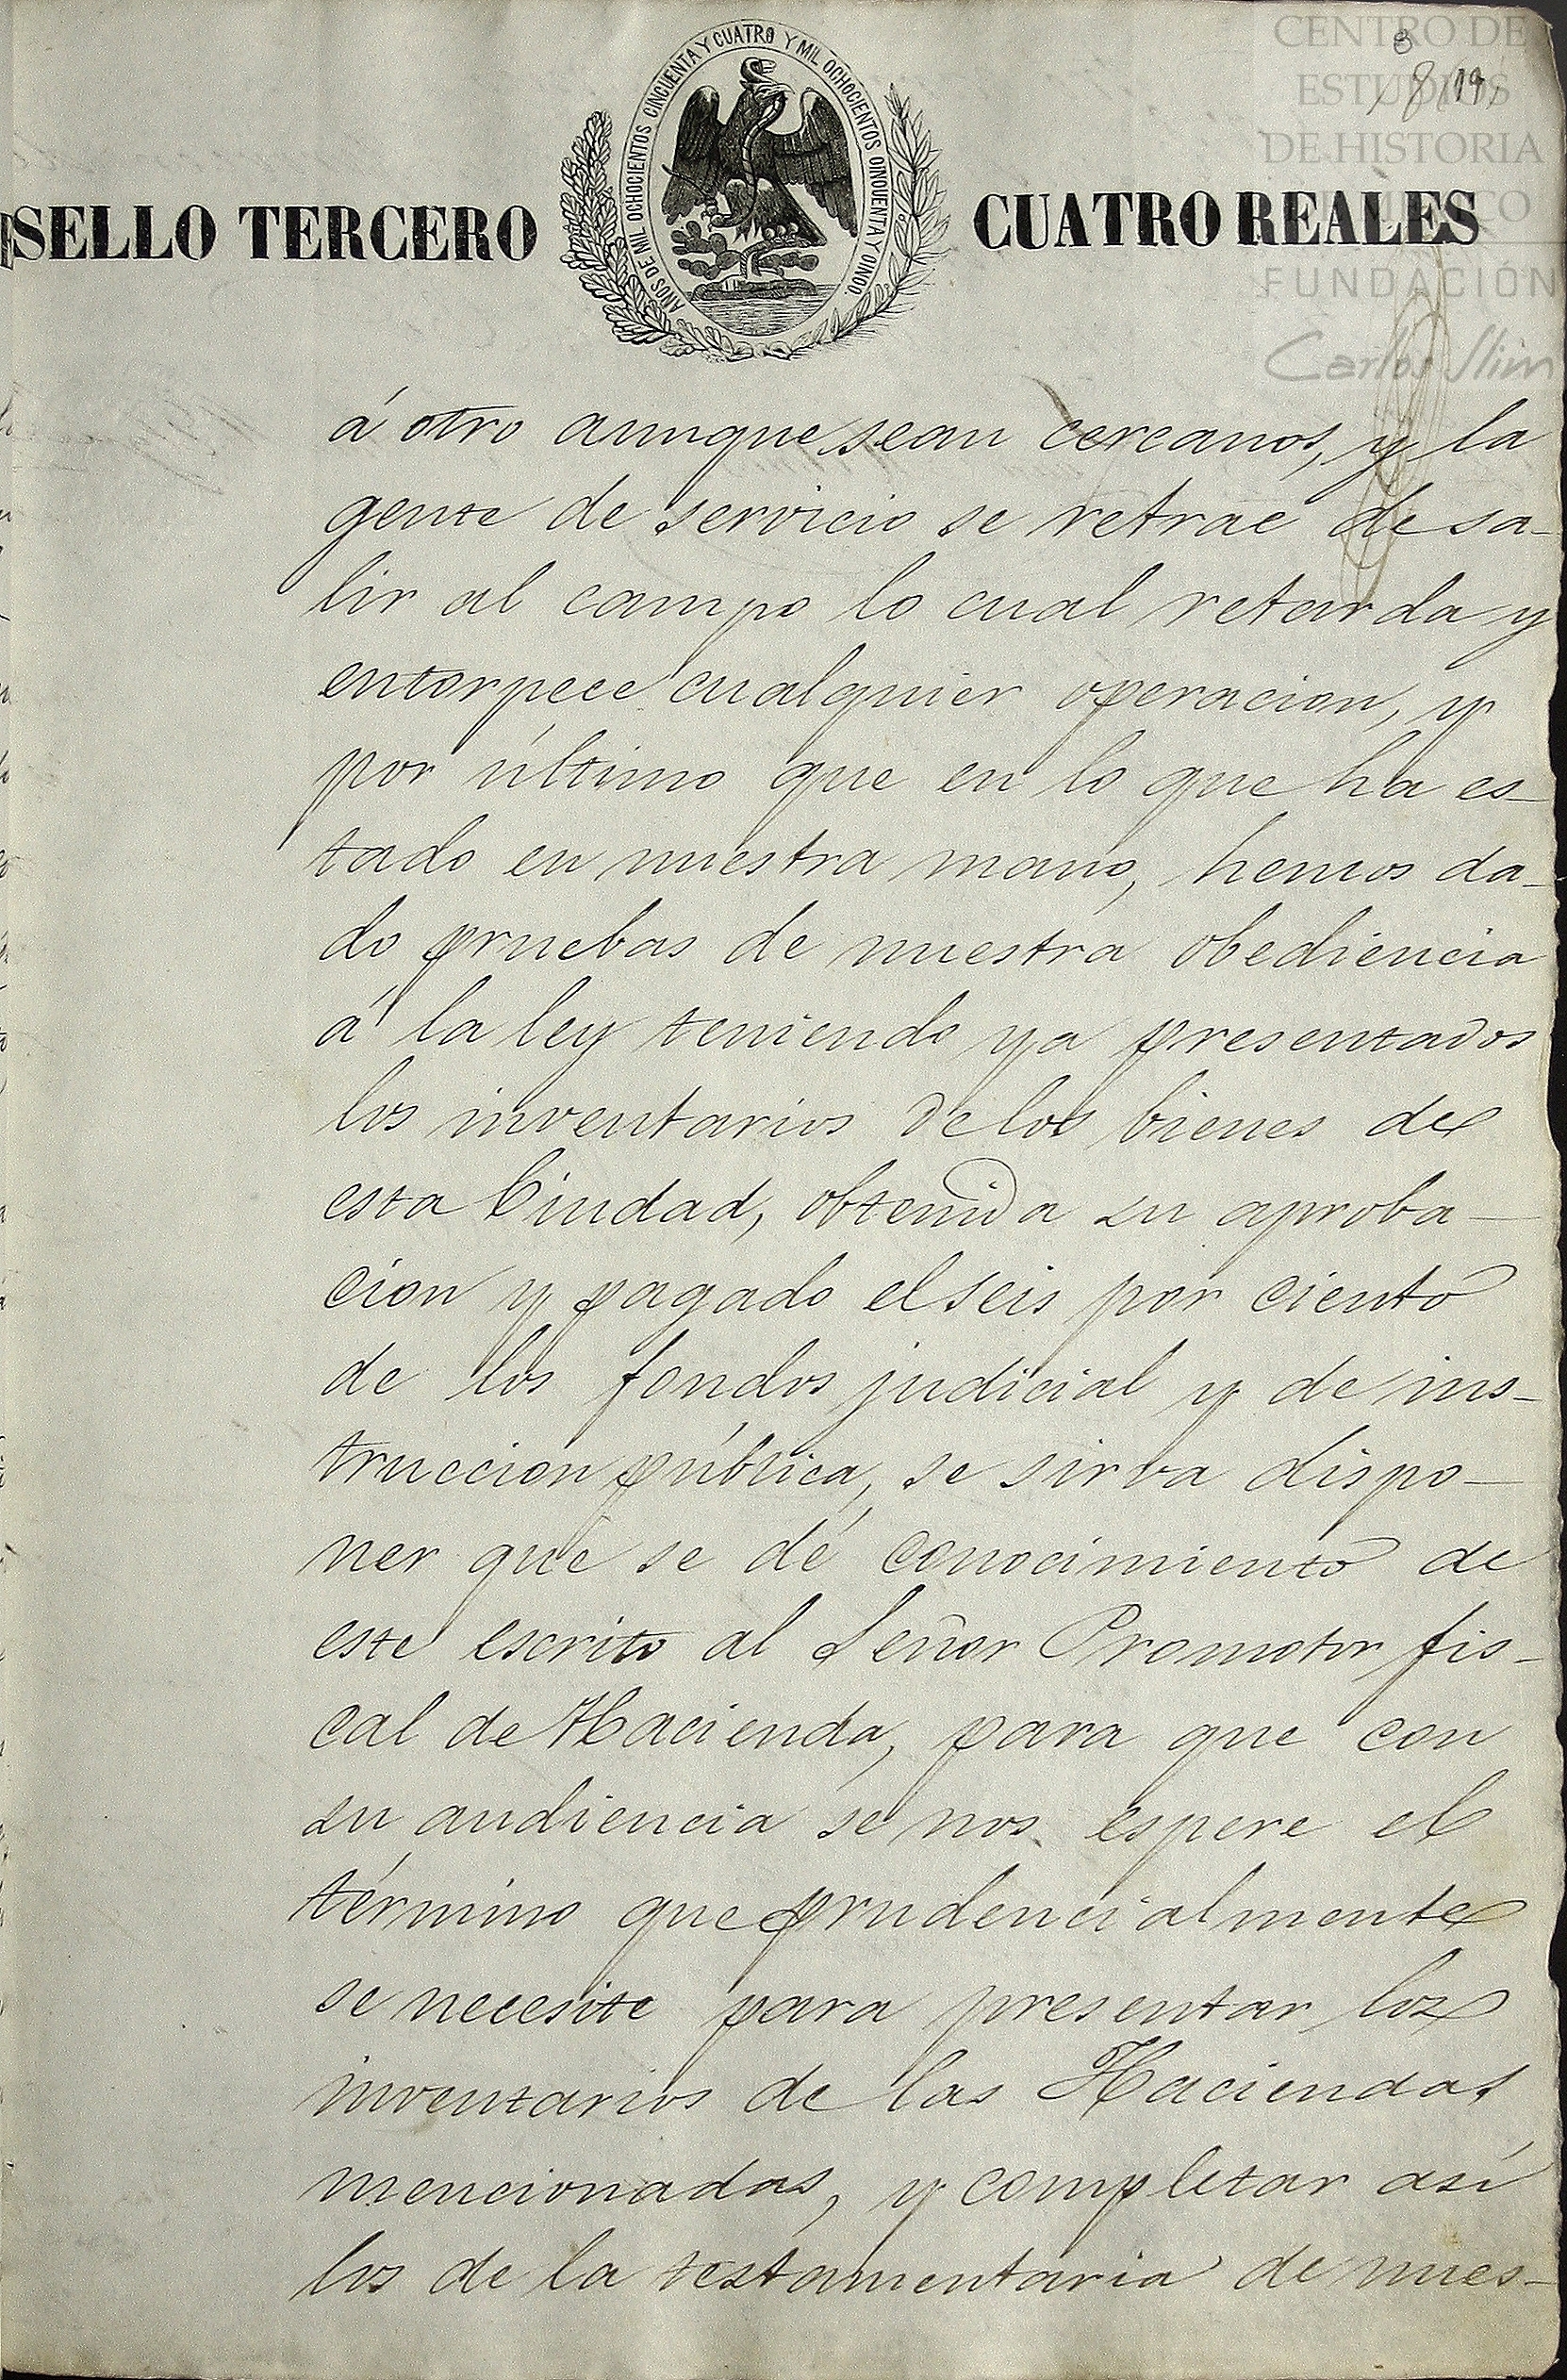 CENTRO DE
ESTUDIOS
DE HISTORIA
DE MÉXICO
FUNDACIÓN
Carlos Slim
8
8 19
AÑOS DE MIL OCHOCIENTOS CINCUENTA Y CUATRO Y MIL OCHOCIENTOS CINCUENTA Y CINCO.
SELLO TERCERO CUATRO REALES
á otro aunque sean cercanos, y la
gente de servicio se retrae de sa-
lir al campo lo cual retarda y
entorpece cualquier operacion, y
por último que en lo que ha es-
tado en nuestra mano, hemos da-
do pruebas de nuestra obediencia
á la ley teniendo ya presentados
los inventarios de los bienes de
esta Ciudad, obtenida su aproba-
cion y pagado el seis por ciento
de los fondos judicial y de ins-
truccion pública, se sirva dispo-
ner que se dé conocimiento de
este escrito al Señor Promotor fis-
cal de Hacienda, para que con
su audiencia se nos espere el
término que prudencialmente
se necesite para presentar los
inventarios de las Haciendas
mencionadas, y completar así
los de la testamentaria de nues-